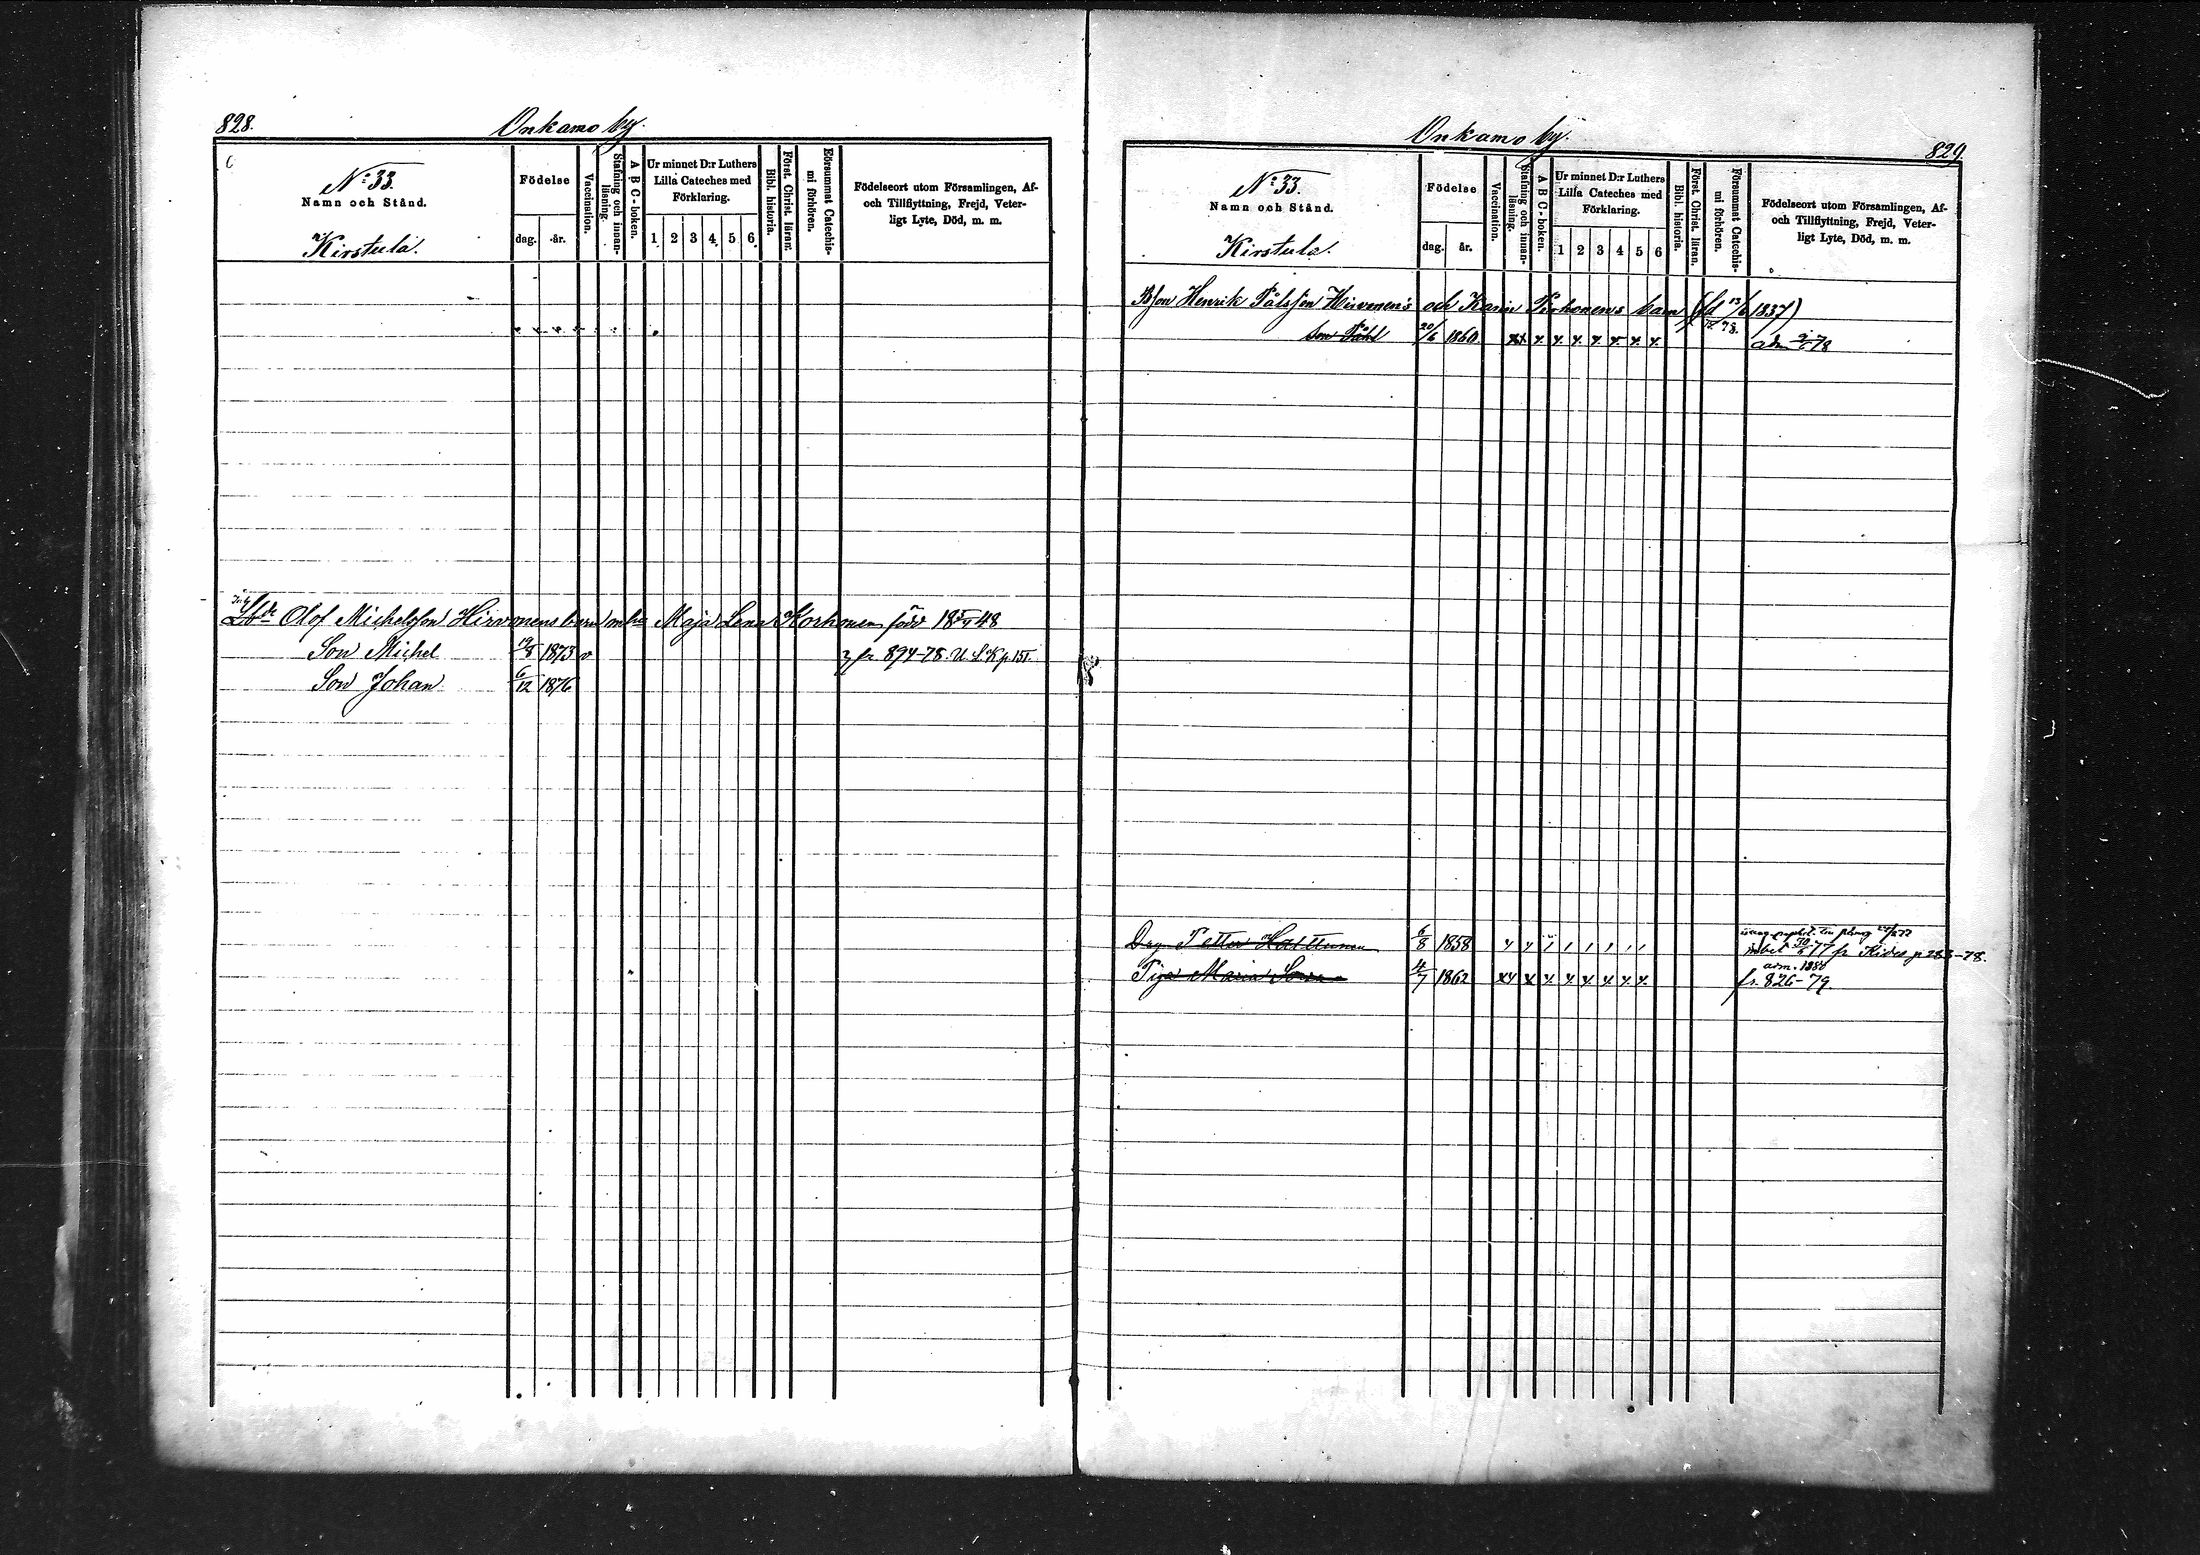 828. Onkamo by.
No 33.
Namn och Stånd.
Kirstula.
Födelse
dag. år.
Vaccination.
Stafning och innan-
läsning.
A B C-boken.
Ur minnet D:r Luthers
Lilla Cateches med
Förklaring.
1 2 3 4 5 6
Bibl. historia.
Först. Christ. läran.
Försummat Catechis-
mi förhören.
Födelseort utom Församlingen, Af-
och Tillflyttning, Frejd, Veter-
ligt Lyte, Död, m. m.
Olof Michelsson Hirvonens barn m hu Maja Lena Korhonen född 18 5/4 48
Son Michel 19/8 1873 v fr 894-78. U. S. K p. 151.
Son Johan 6/12 1876
Onkamo by. 829.
No 33.
Namn och Stånd.
Kirstula.
Födelse
dag. år.
Vaccination.
Stafning och innan-
läsning.
A B C-boken.
Ur minnet D:r Luthers
Lilla Cateches med
Förklaring.
1 2 3 4 5 6
Bibl. historia.
Först. Christ. läran.
Försummat Catechis-
mi förhören.
Födelseort utom Församlingen, Af-
och Tillflyttning, Frejd, Veter-
ligt Lyte, Död, m. m.
Bson Henrik Pålsson Hirvonens och Karin Pirhonens barn (fd 1837)
78.
son Påhl 20/6 1860 adm 78
Drg Petter Hatttunen 6/8 1858
77 fr Kides p 283-78.
adm. 1880
Piga Maria 4/7 1862 fr. 826-79.